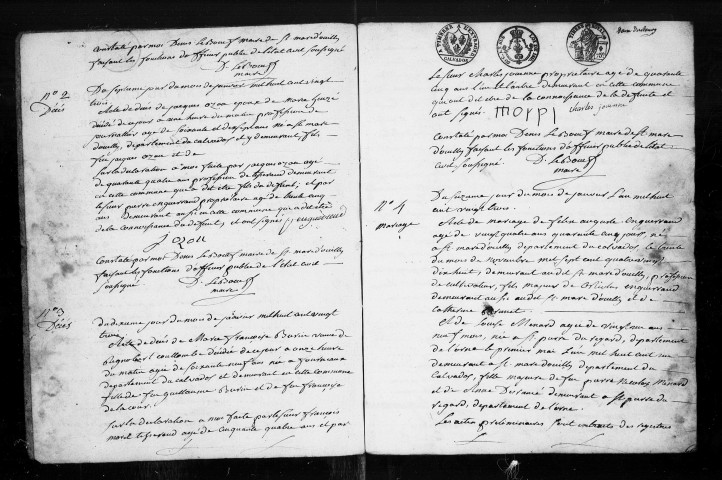 Constaté par moi Denis LeBoeuf maire de St mard'ouilly
faisant les fonctions d'officier public de l'état civil soussigné
D. LeBoeuf
maire
n° 2
Décès
Du septieme jour du mois de janvier mil huit cent vingt
trois
Acte de décès de jacques ozon epoux de Marie
décédé ce jour à une heure du matin profession de
journallier agé de soixante et dix sept ans né a St marc
d'ouilly, département du calvados et y demeurant fils
feu jacques ozon et de
Sur la déclaration à moi faite par jacques ozon agé
de quarante quatre ans profession de tisserand demeurant
en cette commune qui a dit être fils du défunt; et par
le sieur pierre enguerrand propriétaire agé de trente cinq
ans Demeurant aussi en cette commune qui a dit être
de la connaissance du défunt, et ont signé p enguerrand
J ozon
Constaté par moi Denis LeBoeuf maire de St mardouilly
faisant les fonctions d'officier public de l'etat civil
soussigné
D. LeBoeuf
maire
n° 3
Décès
Du dixieme jour du mois de janvier mil huit cent vingt
trois
Acte de décès de Marie françoise Burin veuve de
décédée ce jour à onze heures
du matin agée de soixante neuf ans née a
département du calvados et demeurant en cette commune
fille de feu guillaume Burin et de feu françoise
de la cour.
Sur la déclaration a moi faite par le sieur françois
morel tisserand agé de cinquante quatre ans et par
CALVADOS
Le sieur Charles jouanne propriétaire agé de quarante
cinq ans l'un et l'autre demeurant en cette commune
qui ont dit etre de la connaissance de la défunte et
ont signé
MORPI charles jouanne
Constaté par moi Denis LeBoeuf maire de St marc
d'ouilly faisant les fonctions d'officier public de l'etat
civil soussigné
D. LeBoeuf
maire
n° 4
mariage
Du jour du mois de janvier L'an mil huit
cent vingt trois
Acte de mariage de felix auguste Enguerrand
agé de vingt quatre ans quarante cinq jours, né
a St marcdouilly département du calvados, le trente
du mois de novembre mil sept cent quatre vingt
dix huit, demeurant au dit St marc d'ouilly, profession
de cultivateur, fils majeur de Nicolas enguerrand
demeurant aussi au dit St marc d'ouilly et de
catherine
Et de Louise Menard agée de vingt un ans
neuf mois, née a St pierre du regard, département
de l'orne le premier mai L'an mil huit cent un
demeurant a St marc d'ouilly département du
Calvados, fille majeure de feu pierre Nicolas Ménard
et de Anne demeurant a St pierre du
regard, département de l'orne.
Les actes préliminaires sont extraits des registres